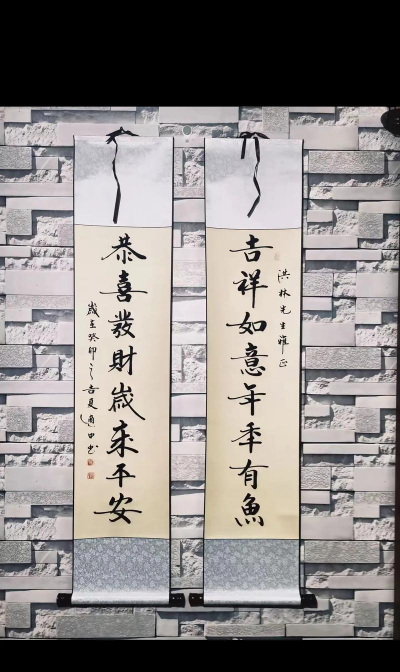 吉祥如意年秊有魚
洪林先生雅正
恭喜發財歲來平安
歲在癸卯之吉夏